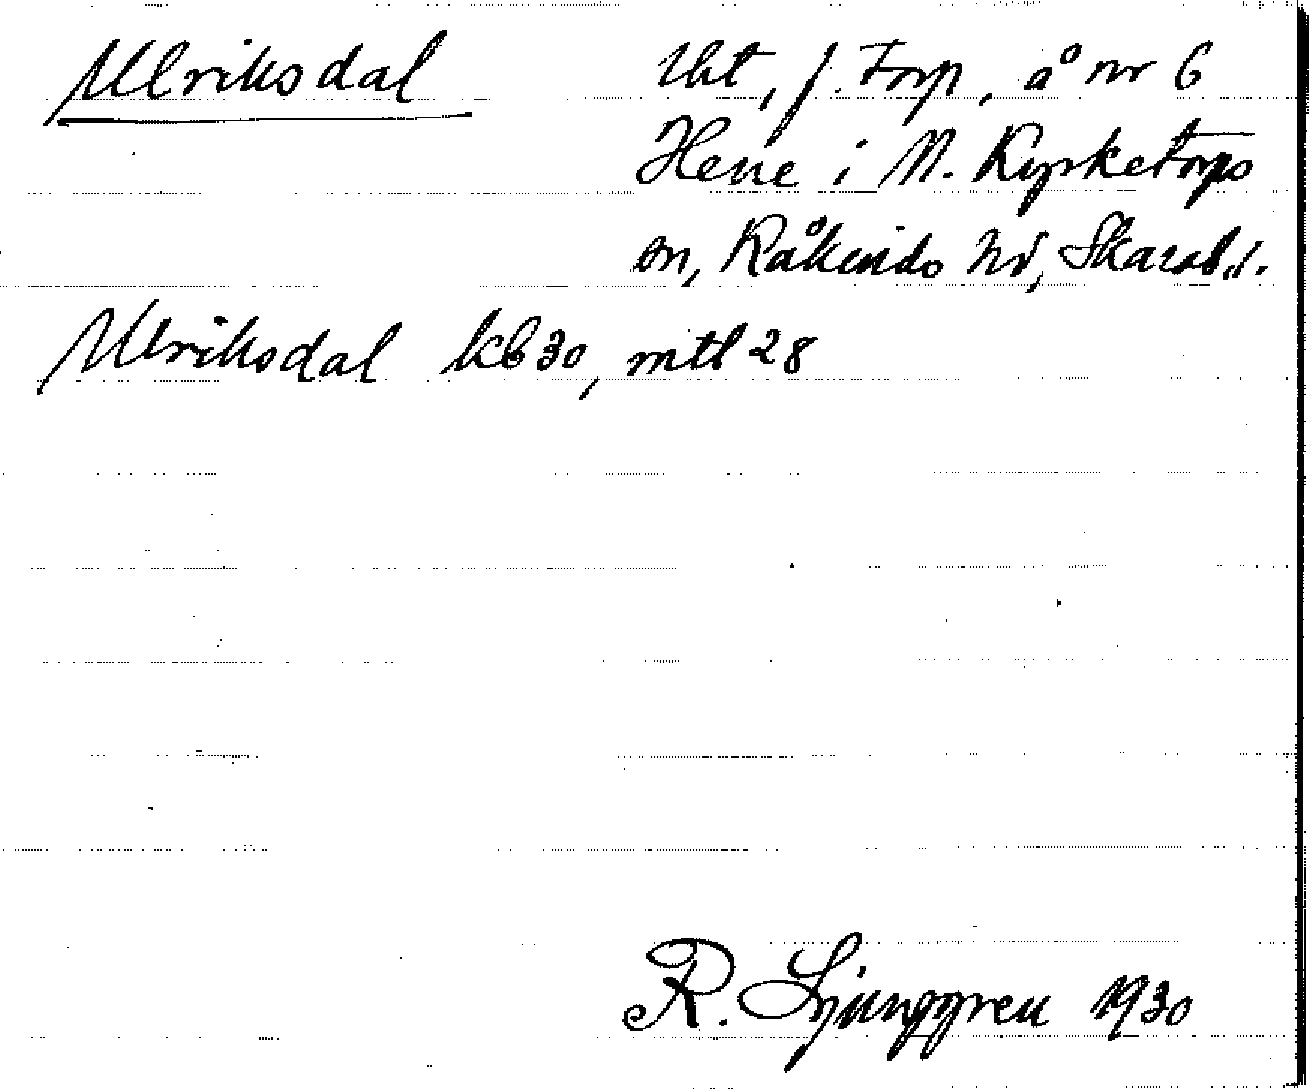 Ulriksdal
Ukt, f. Torp, å nr 6
Hene i N. Kyrketorps
sn, Kåkinds hd, Skarab.l.
Ulriksdal kb 30, mtl 28
R. Ljunggren 1930